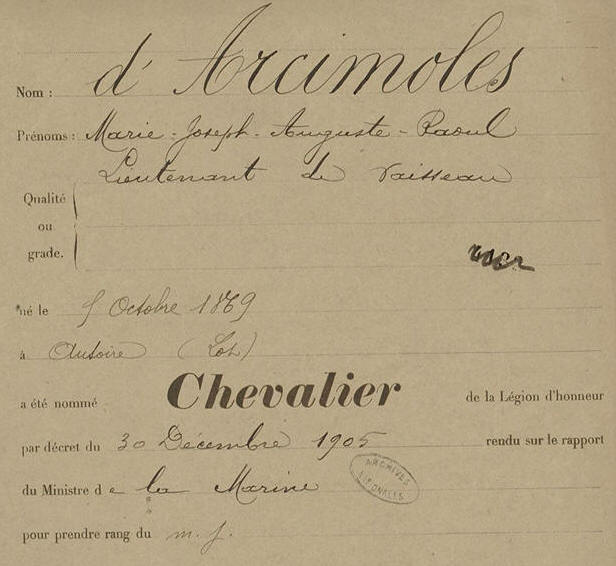 Nom : d'Arcimoles
Prénoms : Marie-Joseph-Auguste-Raoul
Lieutenant de vaisseau
Qualité
ou
grade.
né le 5 Octobre 1869
à Autoire (Lot)
a été nommé Chevalier de la Légion d'honneur
par décret du 30 Décembre 1905 rendu sur le rapport
du Ministre de la Marine
ARCHIVES
NATIONALES
pour prendre rang du m. j.